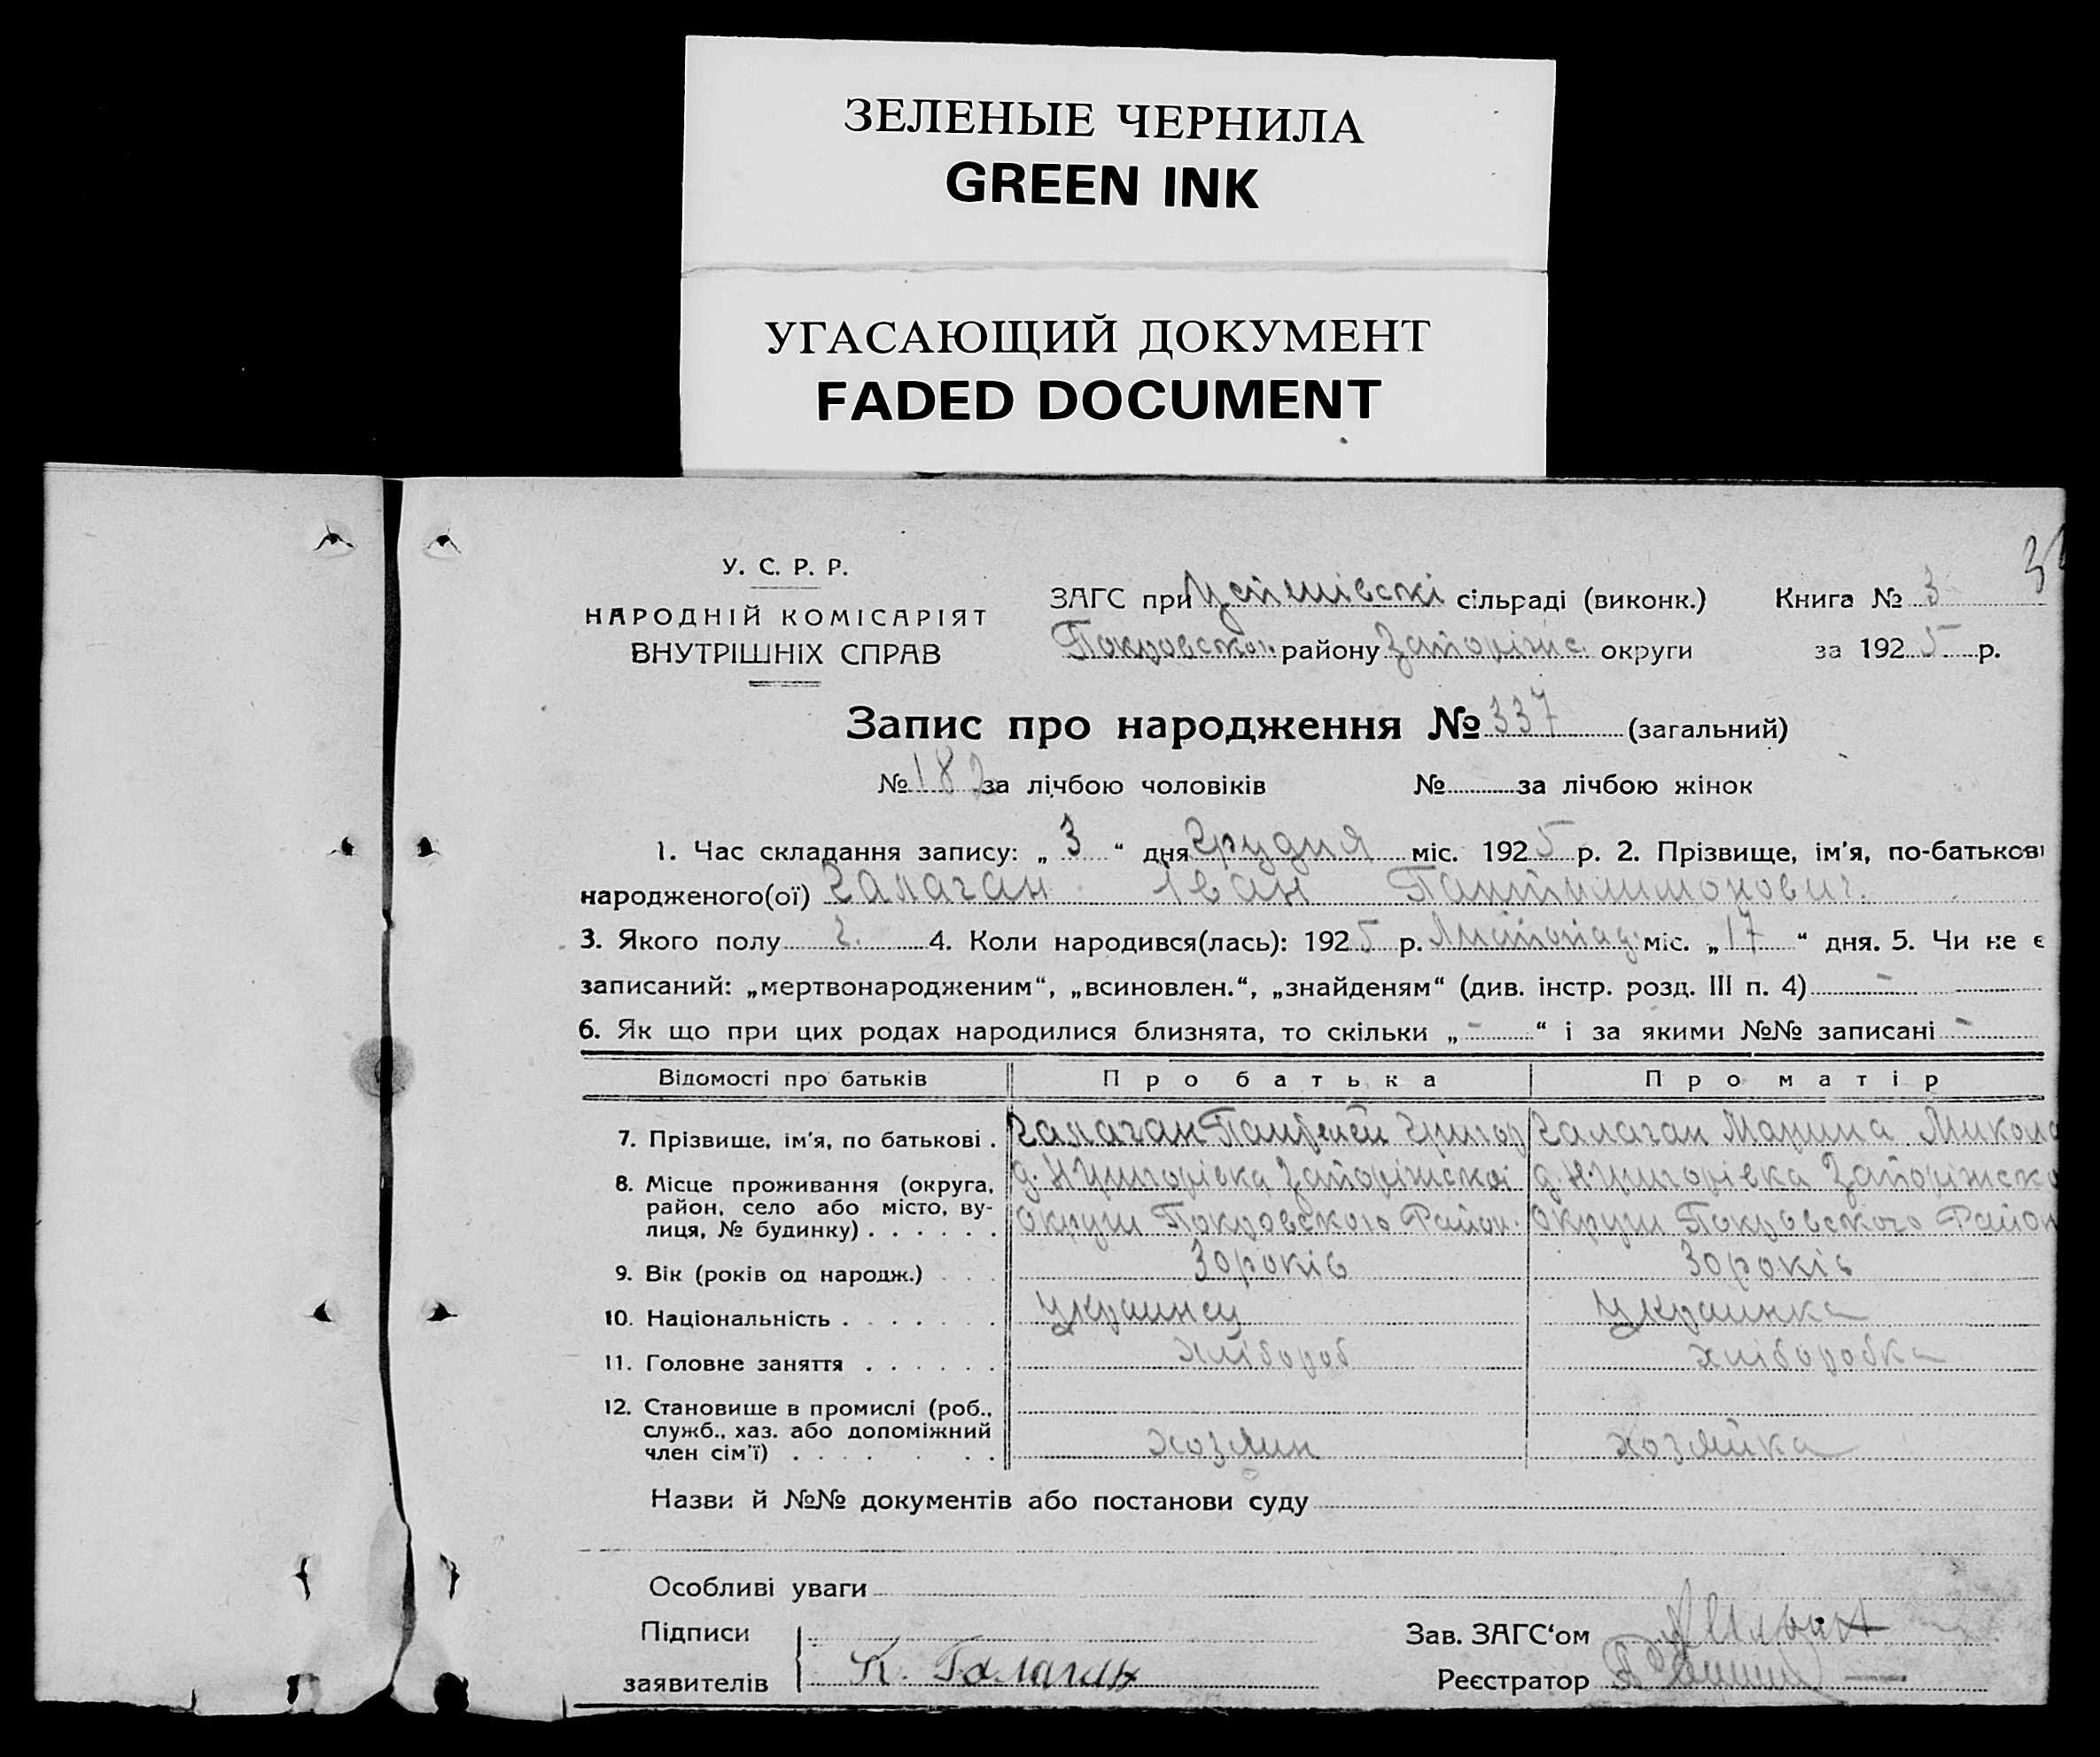 ЗЕЛЕНЫЕ ЧЕРНИЛА
GREEN INK
УГАСАЮЩИЙ ДОКУМЕНТ
FADED DOCUMENT
У. С. Р. Р.
НАРОДНІЙ КОМІСАРІЯТ
ВНУТРІШНІХ СПРАВ
ЗАГС при сільраді (виконк.) Книга № 3
Покровськ. району Запоріжс. округи за 1925 р.
Запис про народження № 337 (загальний)
№ 182 за лічбою чоловіків № за лічбою жінок
1. Час складання запису: „ 3 “ дня Грудня міс. 1925 р. 2. Прізвище, ім'я, по-батькові
народженого(ої) Галаган Іван Пантилимонович.
3. Якого полу ч. 4. Коли народився(лась): 1925 р. Листопад. міс. „ 17 “ дня. 5. Чи не є
записаний: „мертвонародженим“, „всиновлен.“, „знайденям“ (див. інстр. розд. III п. 4) -
6. Як що при цих родах народилися близнята, то скільки „ - “ і за якими №№ записані -
Відомості про батьків Про батька Про матір
7. Прізвище, ім'я, по батькові . Галаган Григор Галаган Марина Микола
8. Місце проживання (округа, д. Н Григорівка Запоріжської д. Н. Григорівка Запоріжско
район, село або місто, ву- округи Покровского Район. округи Покровского Район
лиця, № будинку) . . . . . .
9. Вік (років од народж.) . . . 30 років 30 років
10. Національність . . . . . . . украинец украинка
11. Головне заняття . . . . . . хлібороб хліборобка
12. Становище в промислі (роб.,
служб., хаз. або допоміжний
член сім'ї) . . . . . . . хозяин хозяйка
Назви й №№ документів або постанови суду
Особливі уваги
Підписи Зав. ЗАГС'ом
заявителів К. Галаган Реєстратор